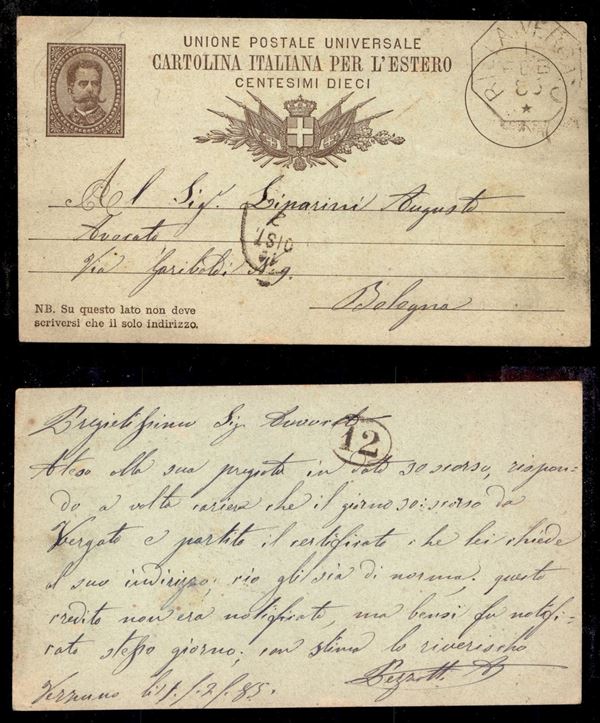 UNIONE POSTALE UNIVERSALE
CARTOLINA ITALIANA PER L'ESTERO
CENTESIMI DIECI
FEB
85
Al Sig. Linarini Augusto
Avocato
Via Garibaldi N. 9
Bologna
NB. Su questo lato non deve
scriversi che il solo indirizzo.
2
DIST
Pregiatissimo Sig. Avvocato
12
Ateso alla sua pregiata in dato 30 scorso, rispon-
do a volta cariera che il giorno 30: scorso da
Vergato è partito il certificato che lei chiede
al suo indirizzo; cio gli sia di norma. questo
credito non era notificato, ma bensi fu notifi-
cato stesso giorno; con stima lo riverischo
Verzuno li 1/2/85.